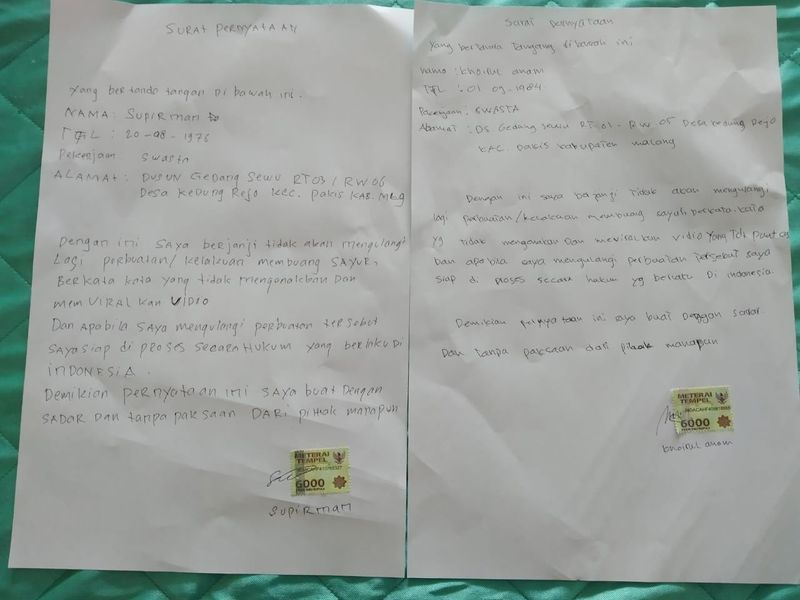 SURAT PERNYATAAN
Yang bertanda tangan Di bawah ini.
NAMA: Supirman
TTL : 20-08-1976
Pekerjaan Swasta
ALAMAT: DUSUN GEDANG SEWU RT03 / RW06
Desa Kedung Rejo KEC. Pakis KAB. MLG
Dengan ini SAYA berjanji tidak akan mengulangi
Lagi perbuatan/ kelakuan membuang SAYUR,
Berkata kata yang tidak mengenakan Dan
mem VIRAL kan VIDIO
Dan Apabila SAYA mengulangi perbuatan tersebut
SAYA Siap di PROSES SECARA HUKUM yang berlaku Di
INDONESIA.
Demikian PERNYATAAN ini SAYA buat Dengan
SADAR Dan tanpa paksaan DARI pihak manapun
METERAI
TEMPEL
6000
SUPIRMAN
Surat Pernyataan
Yang bertanda tangang dibawah ini
nama : khoirul anam
TTL : 01 09-1984.
Pekerjaan : SWASTA
Alamat : DS. Gedang sewu RT 01 - RW 05 Desa kedung Rejo
KAC. pakis kabupaten malang
Dengan ini saya berjanji Tidak akan mengulangi
lagi perbuatan/kelakuan membuang sayur, berkata-kata
yg tidak mengenakan Dan meviralkan vidio Yang Tdk
Dan apabila saya mengulangi perbuatan tersebut saya
siap di proses secara hukum yg berlaku Di Indonesia.
Demikian pernyataan ini saya buat Denggan sadar.
Dan Tanpa paksaan dari pihak manapun
METERAI
TEMPEL
6000
khoirul anam